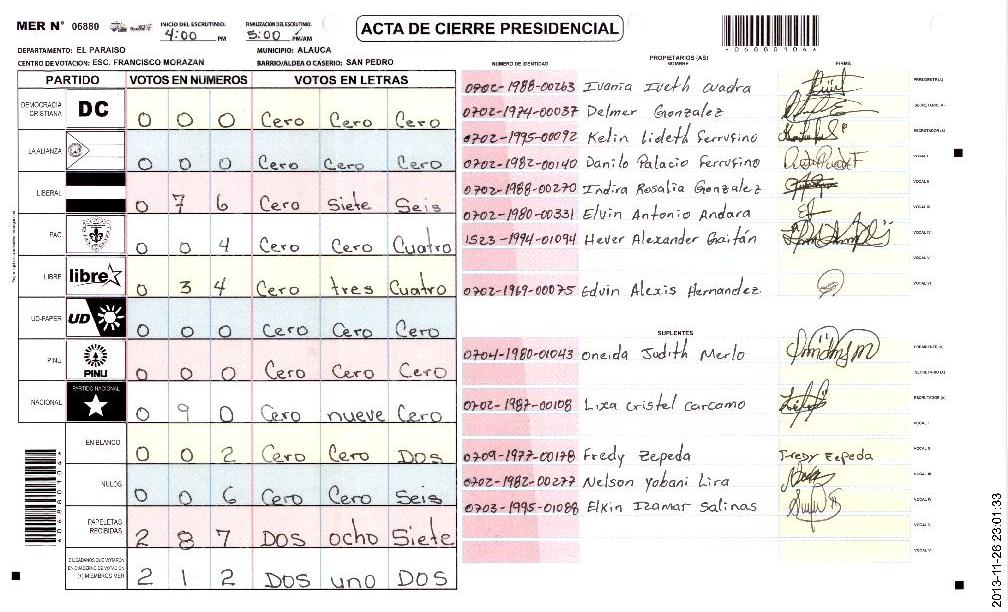 MER N° 06880 INICIO DEL ESCRUTINIO: 4:00 PM FINALIZACION DEL ESCRUTINIO: 5:00 PM/AM ACTA DE CIERRE PRESIDENCIAL
DEPARTAMENTO: EL PARAISO MUNICIPIO: ALAUCA
CENTRO DE VOTACION: ESC. FRANCISCO MORAZAN BARRIO/ALDEA O CASERIO: SAN PEDRO
PARTIDO VOTOS EN NUMEROS VOTOS EN LETRAS
DEMOCRACIA CRISTIANA DC 0 0 0 Cero Cero Cero
LA ALIANZA 0 0 0 Cero Cero Cero
LIBERAL 0 7 6 Cero Siete Seis
PAC 0 0 4 Cero Cero Cuatro
LIBRE libre 0 3 4 Cero tres Cuatro
UD-FAPER UD 0 0 0 Cero Cero Cero
PINU PINU 0 0 0 Cero Cero Cero
NACIONAL PARTIDO NACIONAL 0 9 0 Cero nueve Cero
EN BLANCO 0 0 2 Cero Cero DOS
NULOS 0 0 6 Cero Cero Seis
PAPELETAS RECIBIDAS 2 8 7 DOS ocho Siete
CIUDADANOS QUE VOTARON EN CUADERNO DE VOTACION (+) MIEMBROS MER 2 1 2 DOS uno DOS
PROPIETARIOS (AS)
NUMERO DE IDENTIDAD NOMBRE FIRMA
0702-1988-00263 Ivania Iveth cuadra PRESIDENTE(A)
0702-1974-00037 Delmer Gonzalez SECRETARIO (A)
0702-1995-00092 Kelin Lideth Ferrufino ESCRUTADOR (A)
0702-1982-00140 Danilo Palacio Ferrufino VOCAL I
0702-1988-00270 Indira Rosalia Gonzalez VOCAL II
0702-1980-00331 Elvin Antonio Andara VOCAL III
1523-1994-01094 Hever Alexander Gaitán VOCAL IV
VOCAL V
0702-1969-00075 Edvin Alexis Hernandez. VOCAL VI
SUPLENTES
NUMERO DE IDENTIDAD NOMBRE FIRMA
0704-1980-01043 oneida Judith Merlo PRESIDENTE (A)
SECRETARIO (A)
0702-1987-00108 Lixa cristel carcamo ESCRUTADOR (A)
VOCAL I
0709-1977-00178 Fredy Zepeda Fredy Zepeda VOCAL II
0702-1982-00277 Nelson Yobani Lira VOCAL III
0703-1995-01088 Elkin Izamar Salinas VOCAL IV
VOCAL V
VOCAL VI
2013-11-26 23:01:33